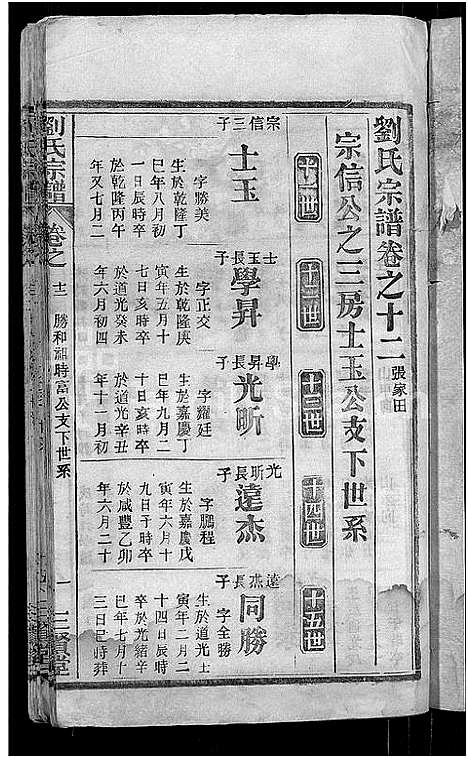 劉氏宗譜卷之十二 張家田
宗信公之三房士玉公支下世系
十一世
十二世
十三世
十四世
十五世
宗信三子
士玉
字勝美
生於乾隆丁
巳年八月初
一日辰時卒
於乾隆丙午
年又七月二
士玉長子
學昇
字正交
生於乾隆庚
寅年五月十
七日亥時卒
於道光癸未
年六月初四
學昇長子
光昕
字耀廷
生於嘉慶丁
巳年九月二
十日亥時卒
於道光辛丑
年十一月初
光昕長子
達杰
字鵬程
生於嘉慶戊
寅年六月十
九日子時卒
於咸豐乙卯
年六月二十
達杰長子
同勝
字全勝
生於道光十
寅年二月二
十四日辰時
卒於光緒辛
巳年七月十
三日巳時葬
劉氏宗譜
卷之十二
勝和韶時富公支下世系
一
三賢堂